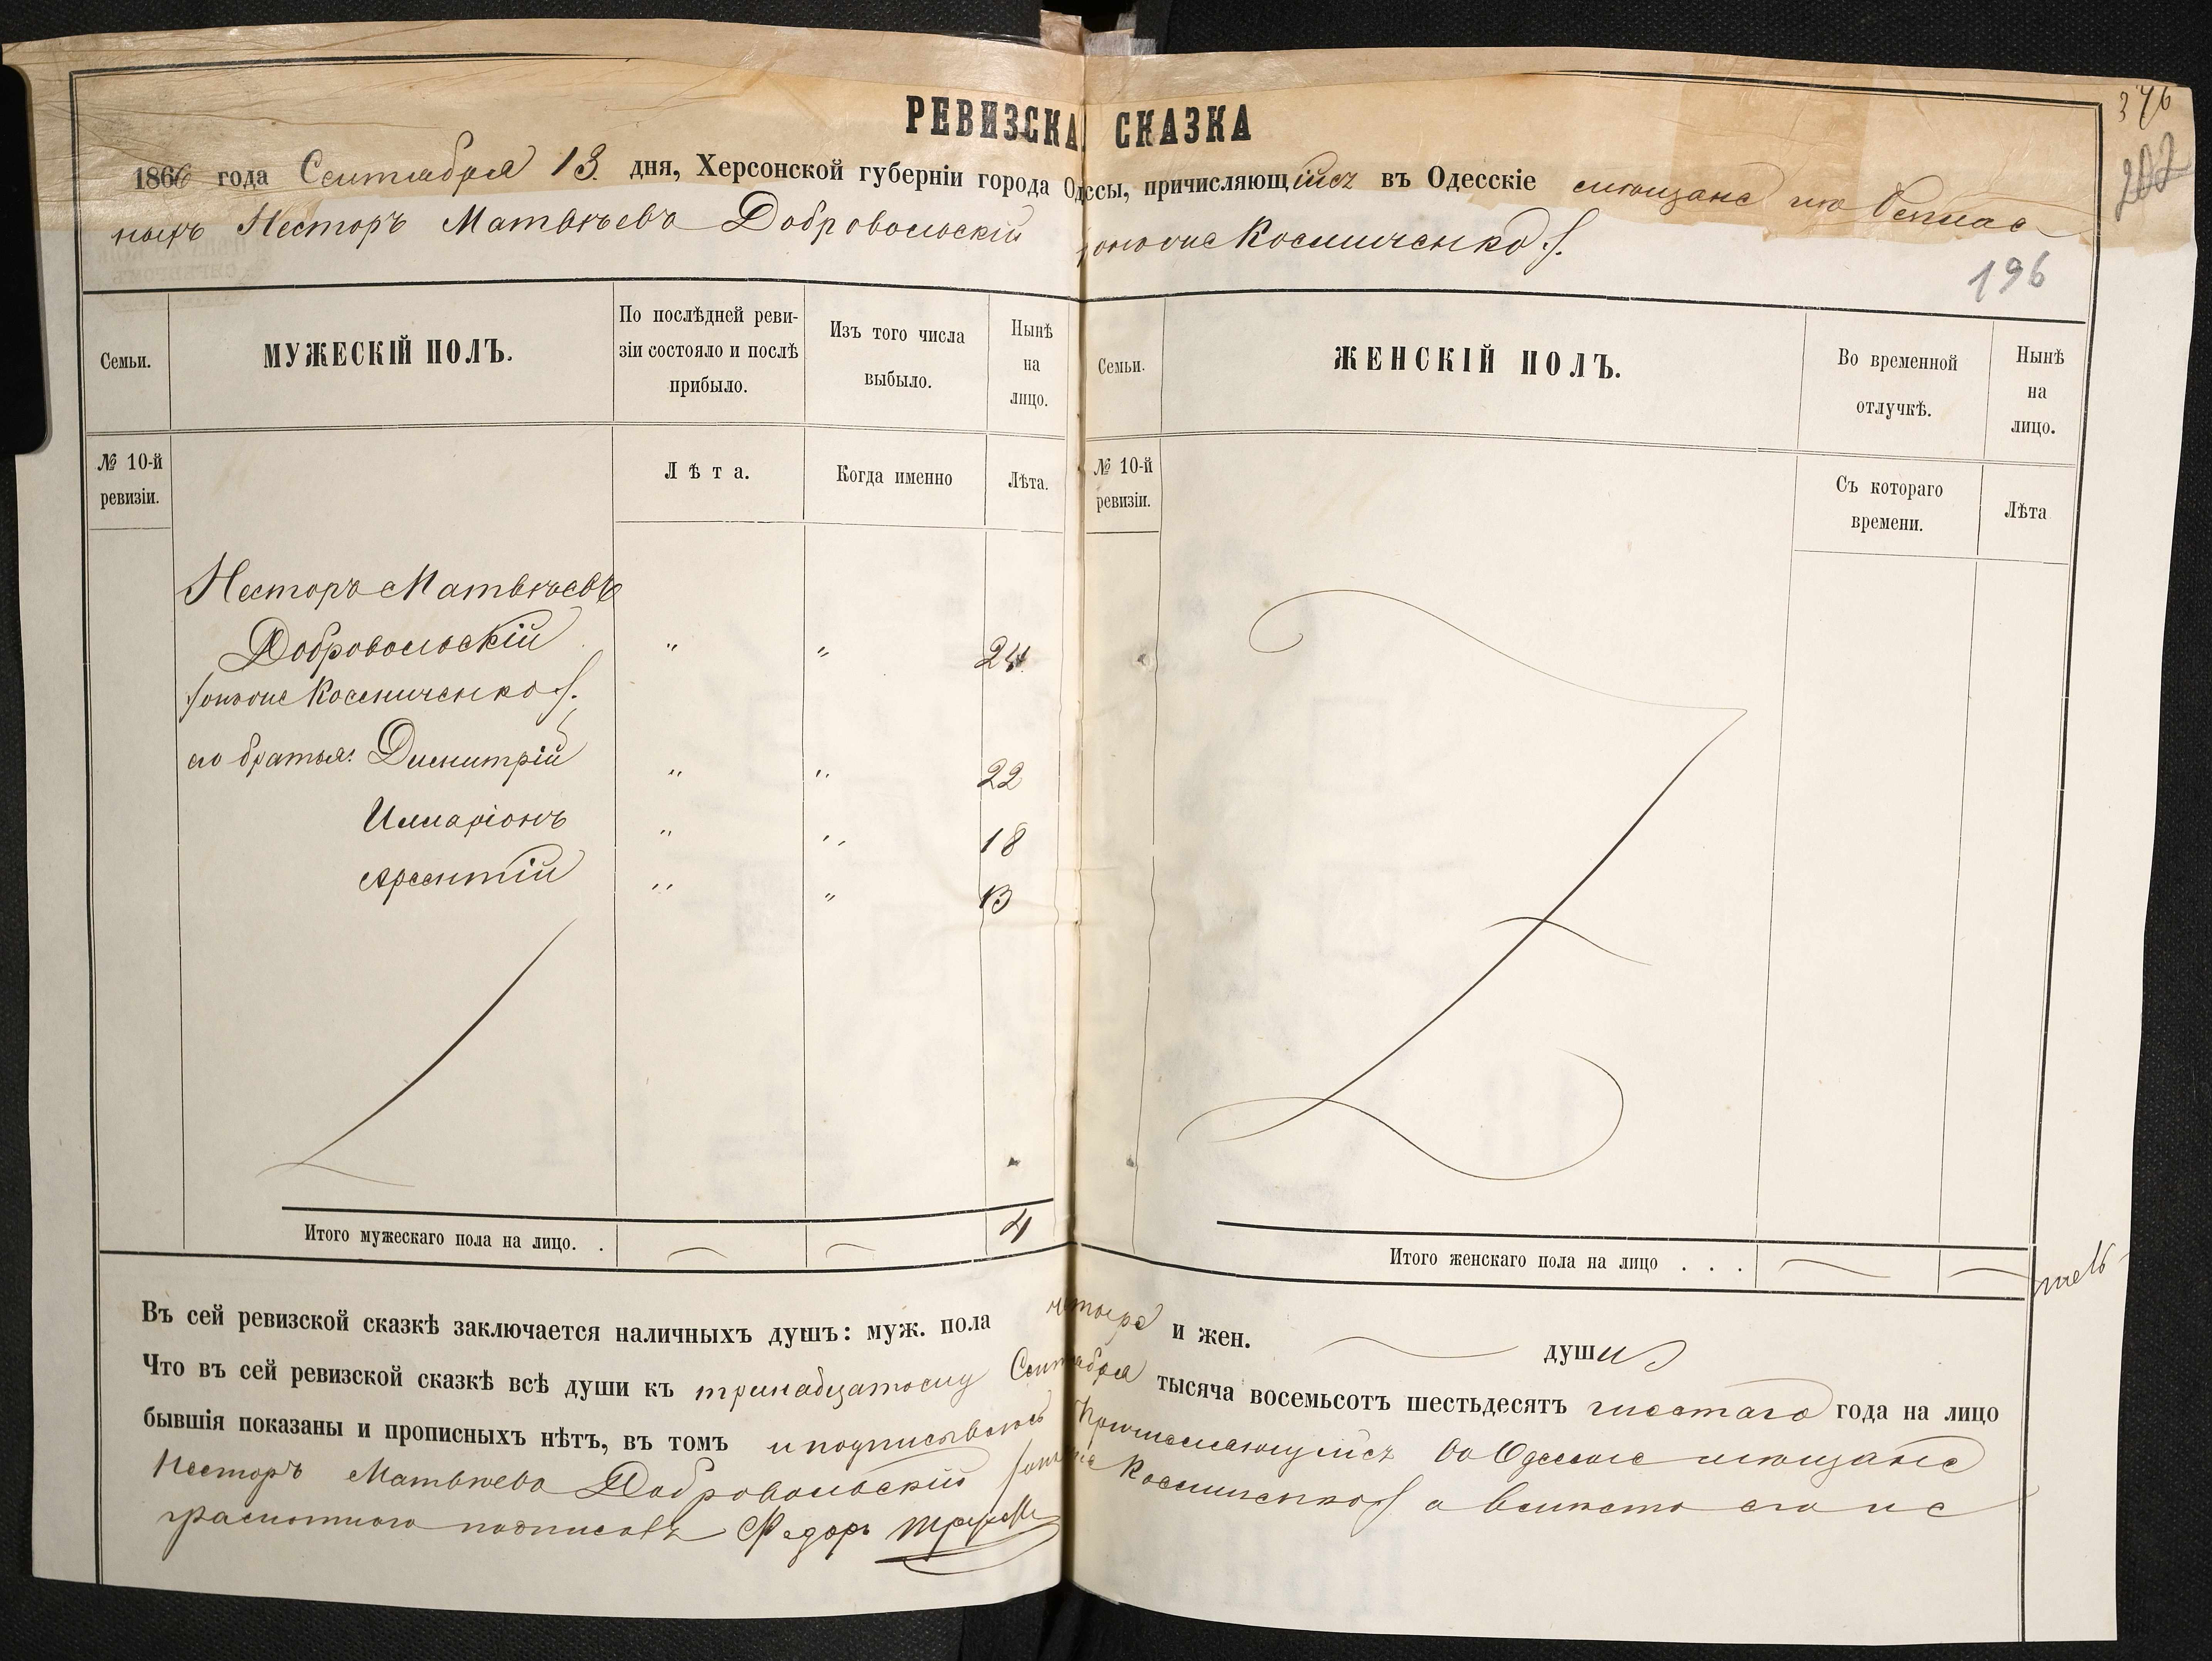 376
202
РЕВИЗСКА СКАЗКА
1866 года Сентября 13 дня, Херсонской губерніи города Одессы, причисляющійся въ Одесскіе мѣщане
ныхъ Несторъ Матвѣевъ Добровольскій онъ же Космиченко
196
Семьи.
МУЖЕСКІЙ ПОЛЪ.
По послѣдней реви-
зіи состояло и послѣ
прибыло.
Изъ того числа
выбыло.
Нынѣ
на
лицо.
Семьи.
ЖЕНСКІЙ ПОЛЪ.
Во временной
отлучкѣ.
Нынѣ
на
лицо.
№ 10-й
ревизіи.
Лѣта.
Когда именно
Лѣта.
№ 10-й
ревизіи.
Съ котораго
времени.
Лѣта
Несторъ Матвѣевъ
Добровольскій " " 24
(онъ же Космиченко).
его братья: Димитрій " " 22
Илларіонъ " " 18
Арсентій " " 13
Итого мужескаго пола на лицо. . 4
Итого женскаго пола на лицо . . .
Въ сей ревизской сказкѣ заключается наличныхъ душъ: муж. пола четыре и жен. души
Что въ сей ревизской сказкѣ всѣ души къ тринадцатому Сентября тысяча восемьсотъ шестьдесятъ шестаго года на лицо
бывшія показаны и прописныхъ нѣтъ, въ томъ и подписываюсь Причисляющійся въ Одесскіе мѣщане
Несторъ Матвѣевъ Добровольскій (онъ же Космиченко) а вмѣсто его не
грамотнаго подписалъ Федоръ